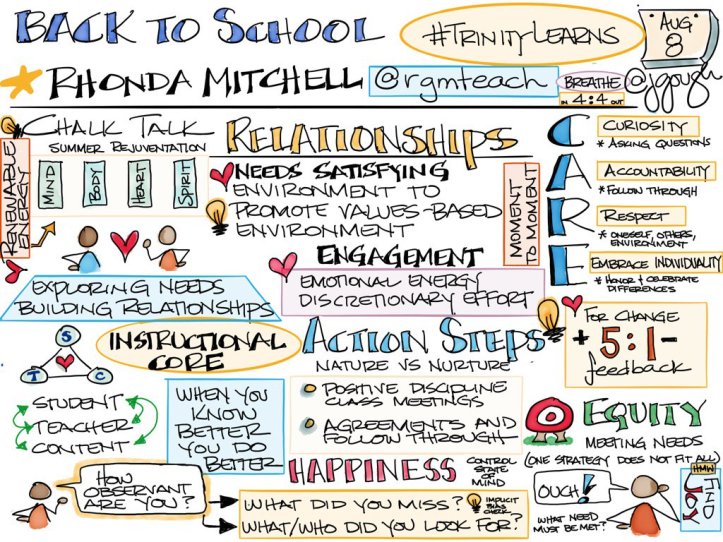 BACK TO SCHOOL
#TRINITYLEARNS
AUG
8
RHONDA MITCHELL
@rgmteach
BREATHE
IN 4:4 OUT
@jgough
CHALK TALK
SUMMER REJUVENTATION
RENEWABLE
ENERGY
MIND
BODY
HEART
SPIRIT
EXPLORING NEEDS
BUILDING RELATIONSHIPS
RELATIONSHIPS
NEEDS SATISFYING
ENVIRONMENT TO
PROMOTE VALUES-BASED
ENVIRONMENT
MOMENT
TO MOMENT
ENGAGEMENT
EMOTIONAL ENERGY
DISCRETIONARY EFFORT
C
CURIOSITY
* ASKING QUESTIONS
A
ACCOUNTABILITY
* FOLLOW THROUGH
R
RESPECT
* ONESELF, OTHERS,
ENVIRONMENT
E
EMBRACE INDIVIDUALITY
* HONOR & CELEBRATE
DIFFERENCES
INSTRUCTIONAL
CORE
S
T
C
STUDENT
TEACHER
CONTENT
WHEN YOU
KNOW
BETTER
YOU DO
BETTER
ACTION STEPS
NATURE VS NURTURE
POSITIVE DISCIPLINE
CLASS MEETINGS
AGREEMENTS AND
FOLLOW THROUGH
FOR CHANGE
+ 5:1 -
feedback
EQUITY
MEETING NEEDS
(ONE STRATEGY DOES NOT FIT ALL)
HAPPINESS
CONTROL
STATE
OF
MIND
HOW
OBSERVANT
ARE YOU?
WHAT DID YOU MISS?
IMPLICIT
BIAS
CHECK
WHAT/WHO DID YOU LOOK FOR?
OUCH!
WHAT NEED
MUST BE MET?
HMW
FIND
JOY